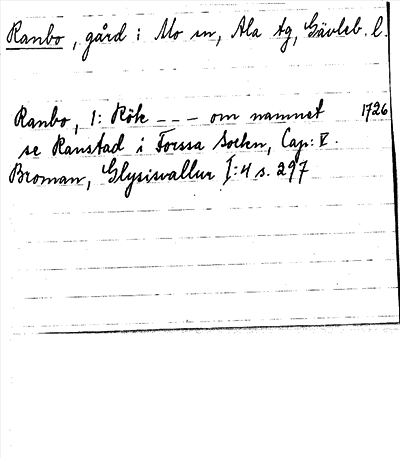 Ranbo, gård i Mo sn, Ala tg, Gävleb. l.
Ranbo, 1: Rök - - - om namnet 1726
se Ranstad i Forssa Sockn, Cap: V.
Broman, Glysisvallur I:4 s. 297